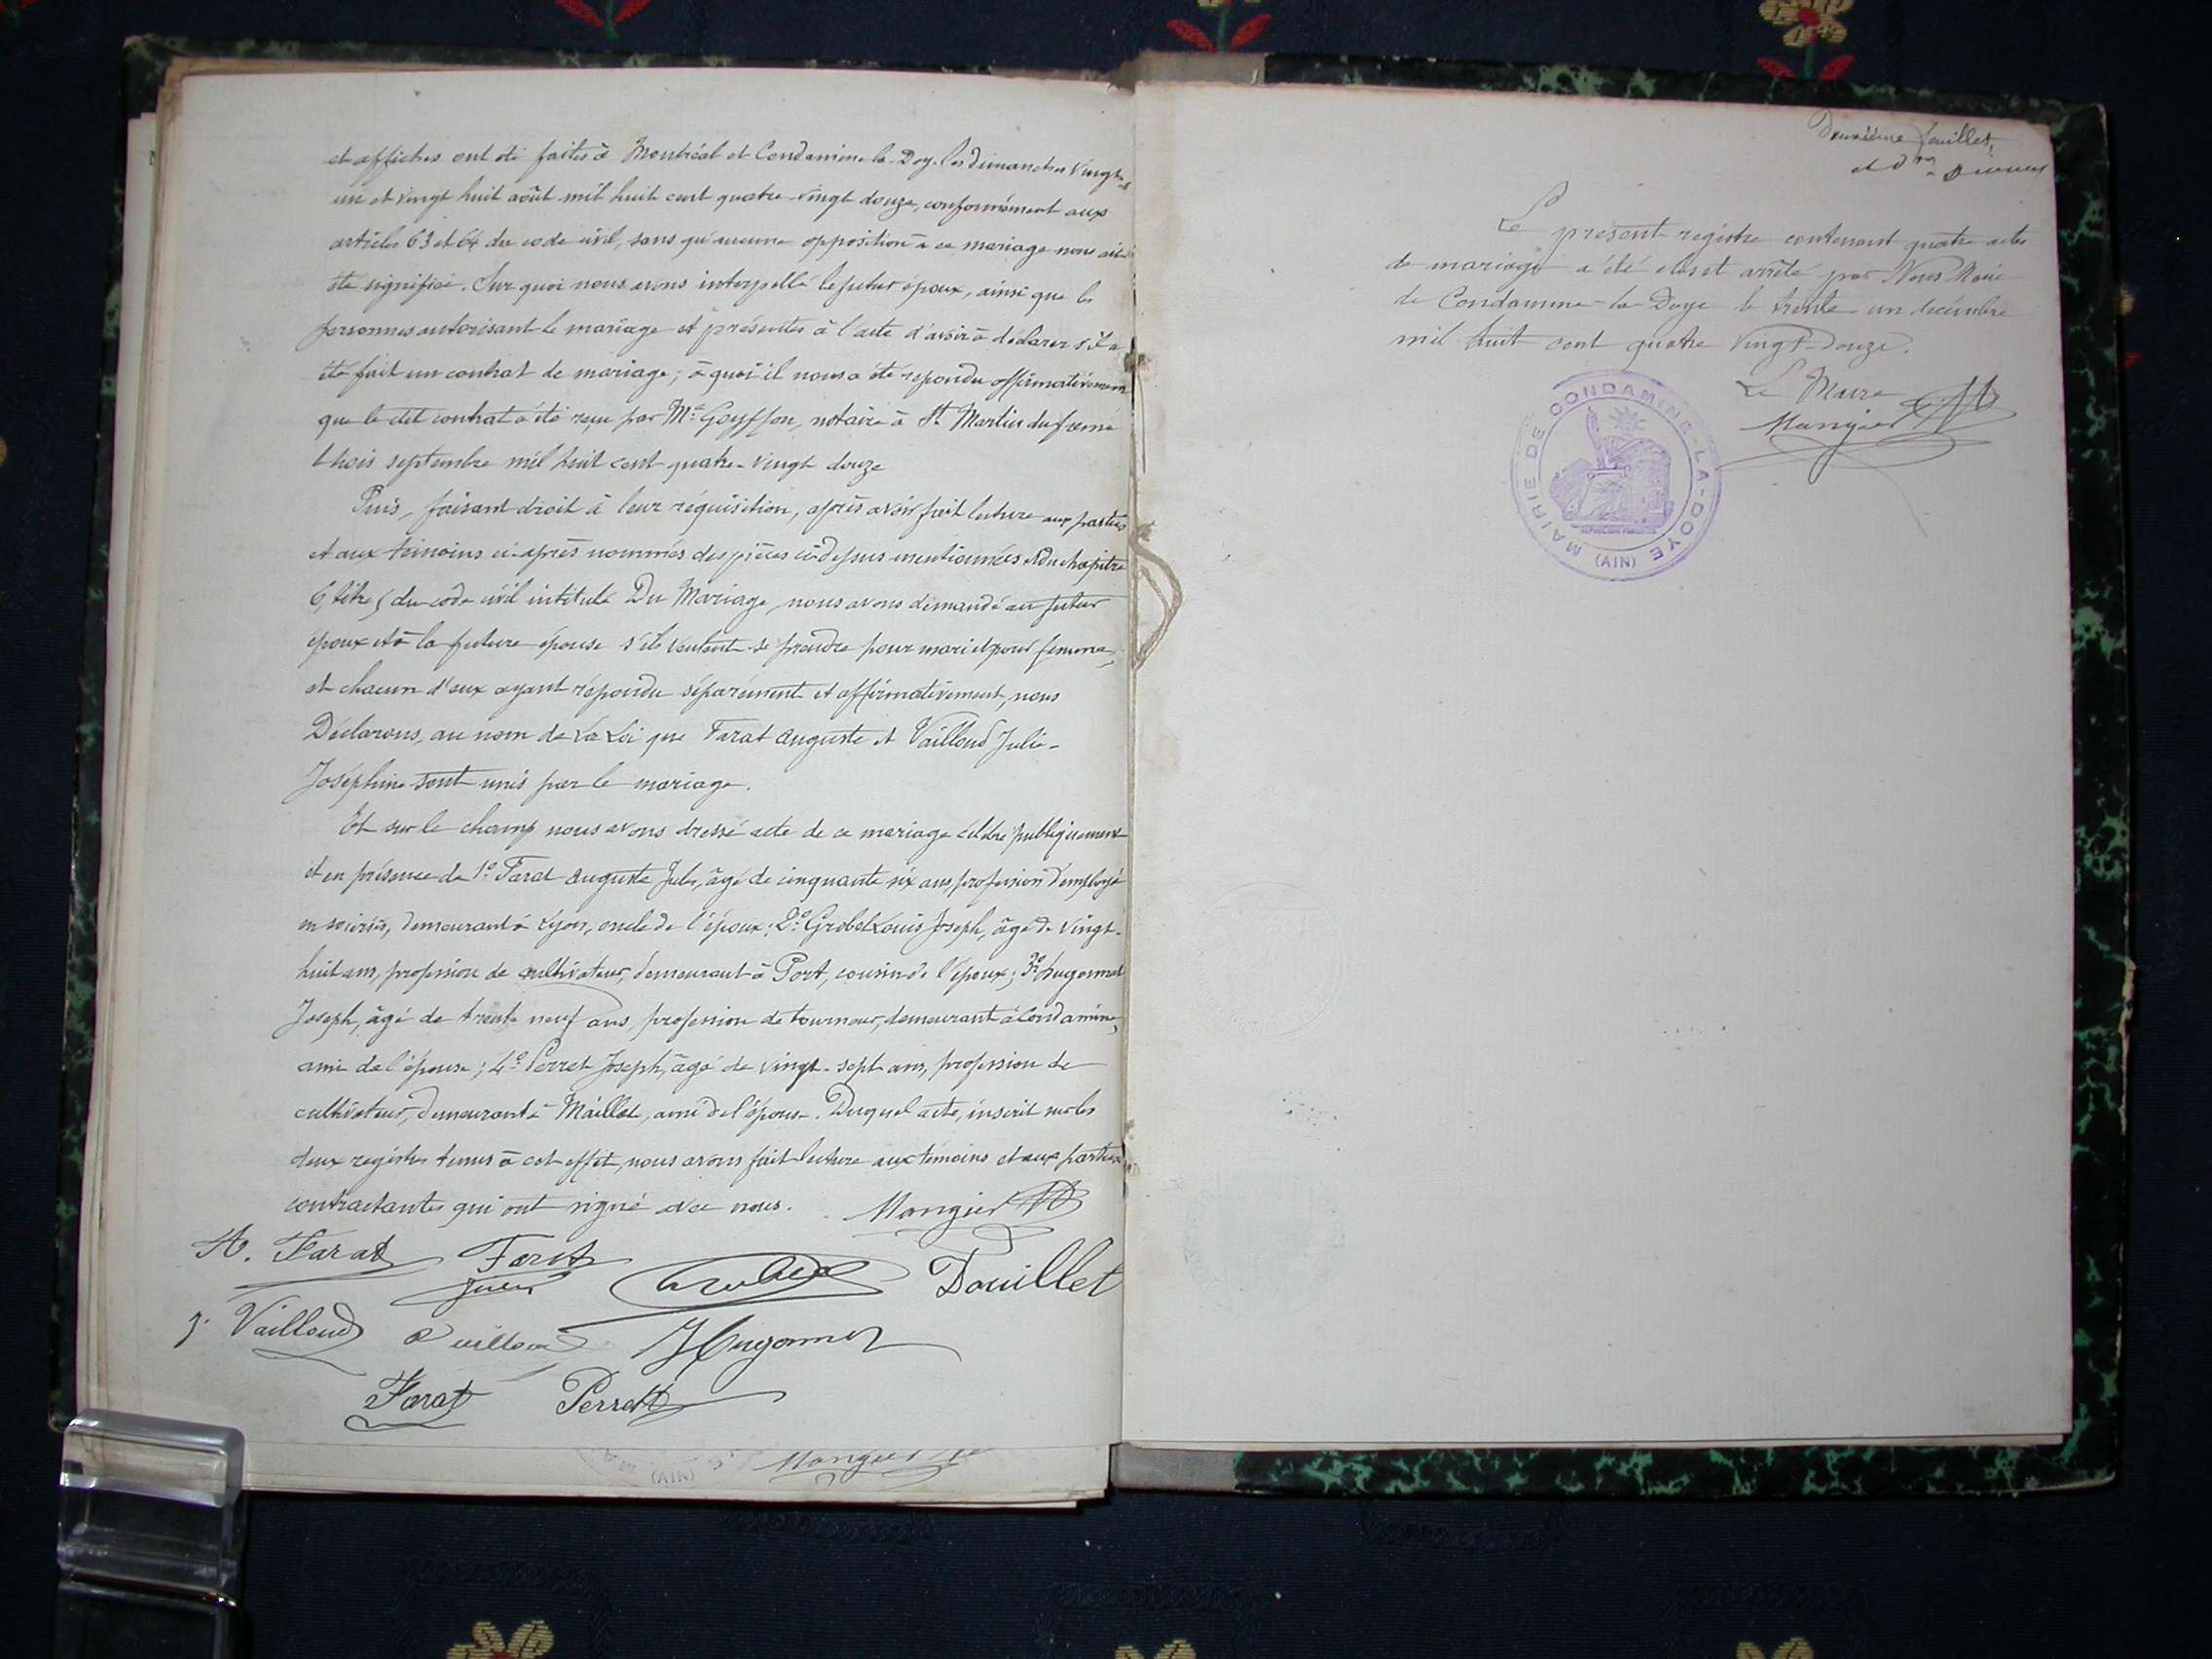 et affiches ont été faites à Montréal et Condamine-la-Doy. les dimanches vingt-
un et vingt huit août mil huit cent quatre-vingt douze, conformément aux
articles 63 et 64 du code civil, sans qu'aucune opposition à ce mariage nous ait
été signifiée. Sur quoi nous avons interpellé le futur époux, ainsi que les
personnes autorisant le mariage et présentes à l'acte d'avoir à déclarer s'il a
été fait un contrat de mariage; à quoi il nous a été répondu affirmativement
que le dit contrat a été reçu par Me Goyffon, notaire à St Martin du frêne
trois septembre mil huit cent quatre-vingt douze
Puis, faisant droit à leur réquisition, après avoir fait lecture aux parties
et aux témoins ci-après nommés des pièces ci-dessus mentionnées et du chapitre
6, titre 5 du code civil intitulé Du Mariage, nous avons demandé au futur
époux et à la future épouse s'ils veulent se prendre pour mari et pour femme,
et chacun d'eux ayant répondu séparément et affirmativement, nous
Déclarons, au nom de La Loi que Farat Auguste et Vailloud Julie-
Joséphine sont unis par le mariage.
Et sur le champ nous avons dressé acte de ce mariage célébré publiquement
et en présence de 1° Farat Auguste Jules, âgé de cinquante six ans, profession d'employé
en soieries, demeurant à Lyon, oncle de l'époux; 2° Grobet Louis Joseph, âgé de vingt-
huit ans, profession de cultivateur, demeurant à Port, cousin de l'époux; 3° Hugonnet
Joseph, âgé de trente neuf ans, profession de tourneur, demeurant à Condamine,
ami de l'épouse; 4° Perret Joseph, âgé de vingt-sept ans, profession de
cultivateur, demeurant à Maillat, ami de l'épouse. Duquel acte, inscrit sur les
deux registres tenus à cet effet, nous avons fait lecture aux témoins et aux parties
contractantes qui ont signé avec nous. Mangier
A. Farat Farat Douillet
Jules
J. Vailloud JHugonnet
Farat Perret
(AIN) Mangier
Deuxième feuillet,
et
Le présent registre contenant quatre actes
de mariage a été clos et arrêté par Nous Maire
de Condamine-la-Doye le trente un décembre
mil huit cent quatre vingt-douze.
Le Maire
Mangier
MAIRIE DE CONDAMINE-LA-DOYE
(AIN)